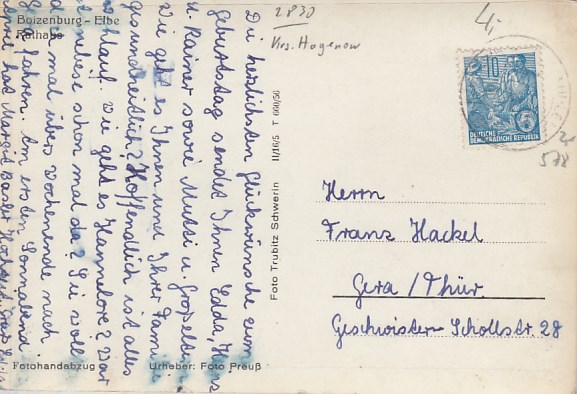 Boizenburg - Elbe
Rathaus
2830
Krs. Hagenow
4,-
10
5
DEUTSCHE
DEMOKRATISCHE REPUBLIK
578
Die herzlichsten Glückwünsche zum
Geburtstag sendet Ihnen Edda, Hans
u. Rainer sowie Mutti u. Großeltern
Wie geht es Ihnen und Ihrer Familie
gesundheitlich? Hoffendlich ist alles
wohlauf. Wie geht es Hannelore? War
nebese schon mal da? Sie woll
mal über's Wochenende nach
fahren. Am ersten Sonnabend
hat Margid Basler Hochzeit
Foto Trubitz Schwerin II/16/5 T 660/56
Herrn
Franz Hackel
Gera / Thür.
Geschwister-Schollstr. 28
Fotohandabzug
Urheber: Foto Preuß